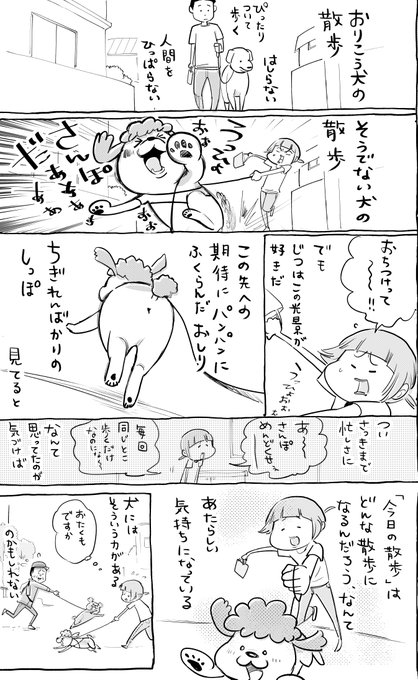 おりこう犬の
散歩
ぴったり
ついて
歩く
はしらない
人間を
ひっぱらない
そうでない犬の
散歩
さんぽ
だぁ
おちつけって
〜〜〜!!
でも
じつはこの光景が
好きだ
この先への
期待にパンパンに
ふくらんだおしり
ちぎれんばかりの
しっぽ
見てると
つい
さっきまで
忙しさに
あ〜
さんぽ
めんどくせ
毎回
同じとこ
歩くだけ
なのに…
なんて
思ってたのが
気づけば
「今日の散歩」は
どんな散歩に
なるんだろう、なんて
あたらしい
気持ちになっている
犬には
そういう力がある
のかもしれない
おたくも
ですか